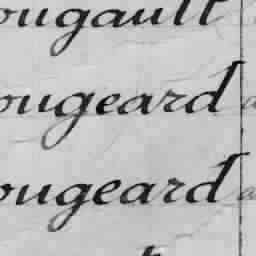 ougault
ougeard
ougeard